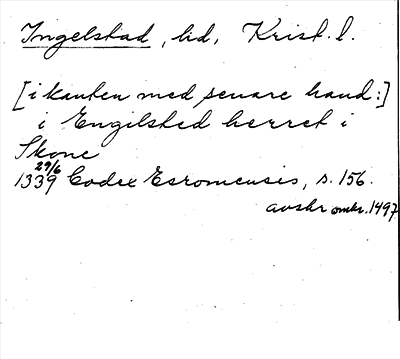 Ingelstad, hd, Krist. l.
[i kanten med senare hand:]
i Engilsted herret i
Skone
1339 29/6 Codex Esromensis, s. 156.
avskr omkr. 1497